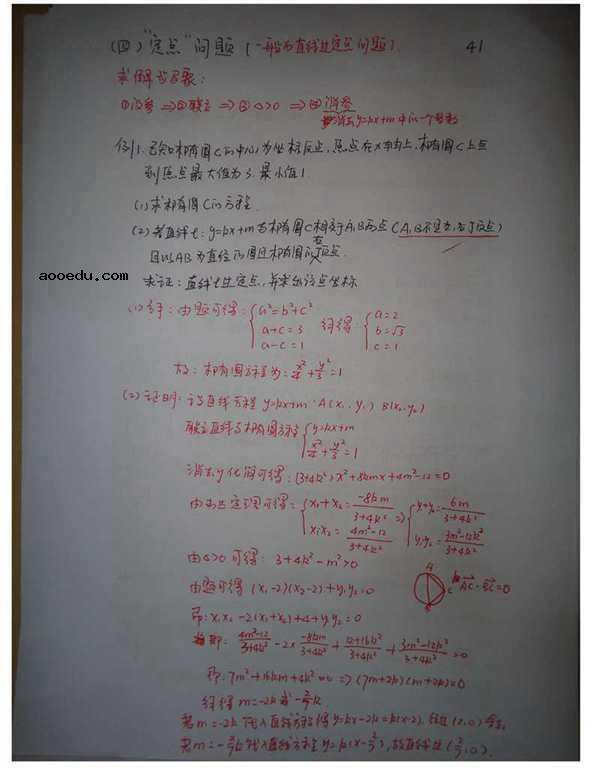 (四)“定点”问题(一般为直线过定点问题). 41
求解步骤:
①设参 ⇒ ②联立 ⇒ ③ △>0 ⇒ ④ 消参
消去y=kx+m中的一个参数
例1. 已知椭圆C的中心为坐标原点,焦点在x轴上,椭圆C上点
到焦点最大值为3.最小值1.
(1)求椭圆C的方程
(2)若直线l:y=kx+m与椭圆C相交于A,B两点(A,B不是左,右顶点)
且以AB为直径的圆过椭圆的右顶点.
aooedu.com
求证:直线l过定点,并求出该点坐标
(1)解:由题可得:{a²=b²+c² a+c=3 a-c=1 解得:{a=2 b=√3 c=1
故:椭圆方程为:x²/4+y²/3=1
(2)证明:设直线方程y=kx+m.A(x₁,y₁) B(x₂,y₂)
联立直线与椭圆方程{y=kx+m x²/4+y²/3=1
消去y化简可得:(3+4k²)x²+8kmx+4m²-12=0
由韦达定理可得:{x₁+x₂=-8km/3+4k² x₁x₂=4m²-12/3+4k² ⇒ {y₁+y₂=6m/3+4k² y₁y₂=3m²-12k²/3+4k²
由△>0可得:3+4k²-m²>0
由题可得 (x₁-2)(x₂-2)+y₁y₂=0 A C AC·BC=0
即:x₁x₂-2(x₁+x₂)+4+y₁y₂=0
即:4m²-12/3+4k² -2×-8km/3+4k² + 12+16k²/3+4k² + 3m²-12k²/3+4k² =0
即:7m²+16km+4k²=0 ⇒ (7m+2k)(m+2k)=0
解得 m=-2k或-2/7k
若m=-2k代入直线方程得y=kx-2k=k(x-2).过(2,0)
若m=-2/7k代入直线方程y=k(x-2/7),故直线过(2/7,0).